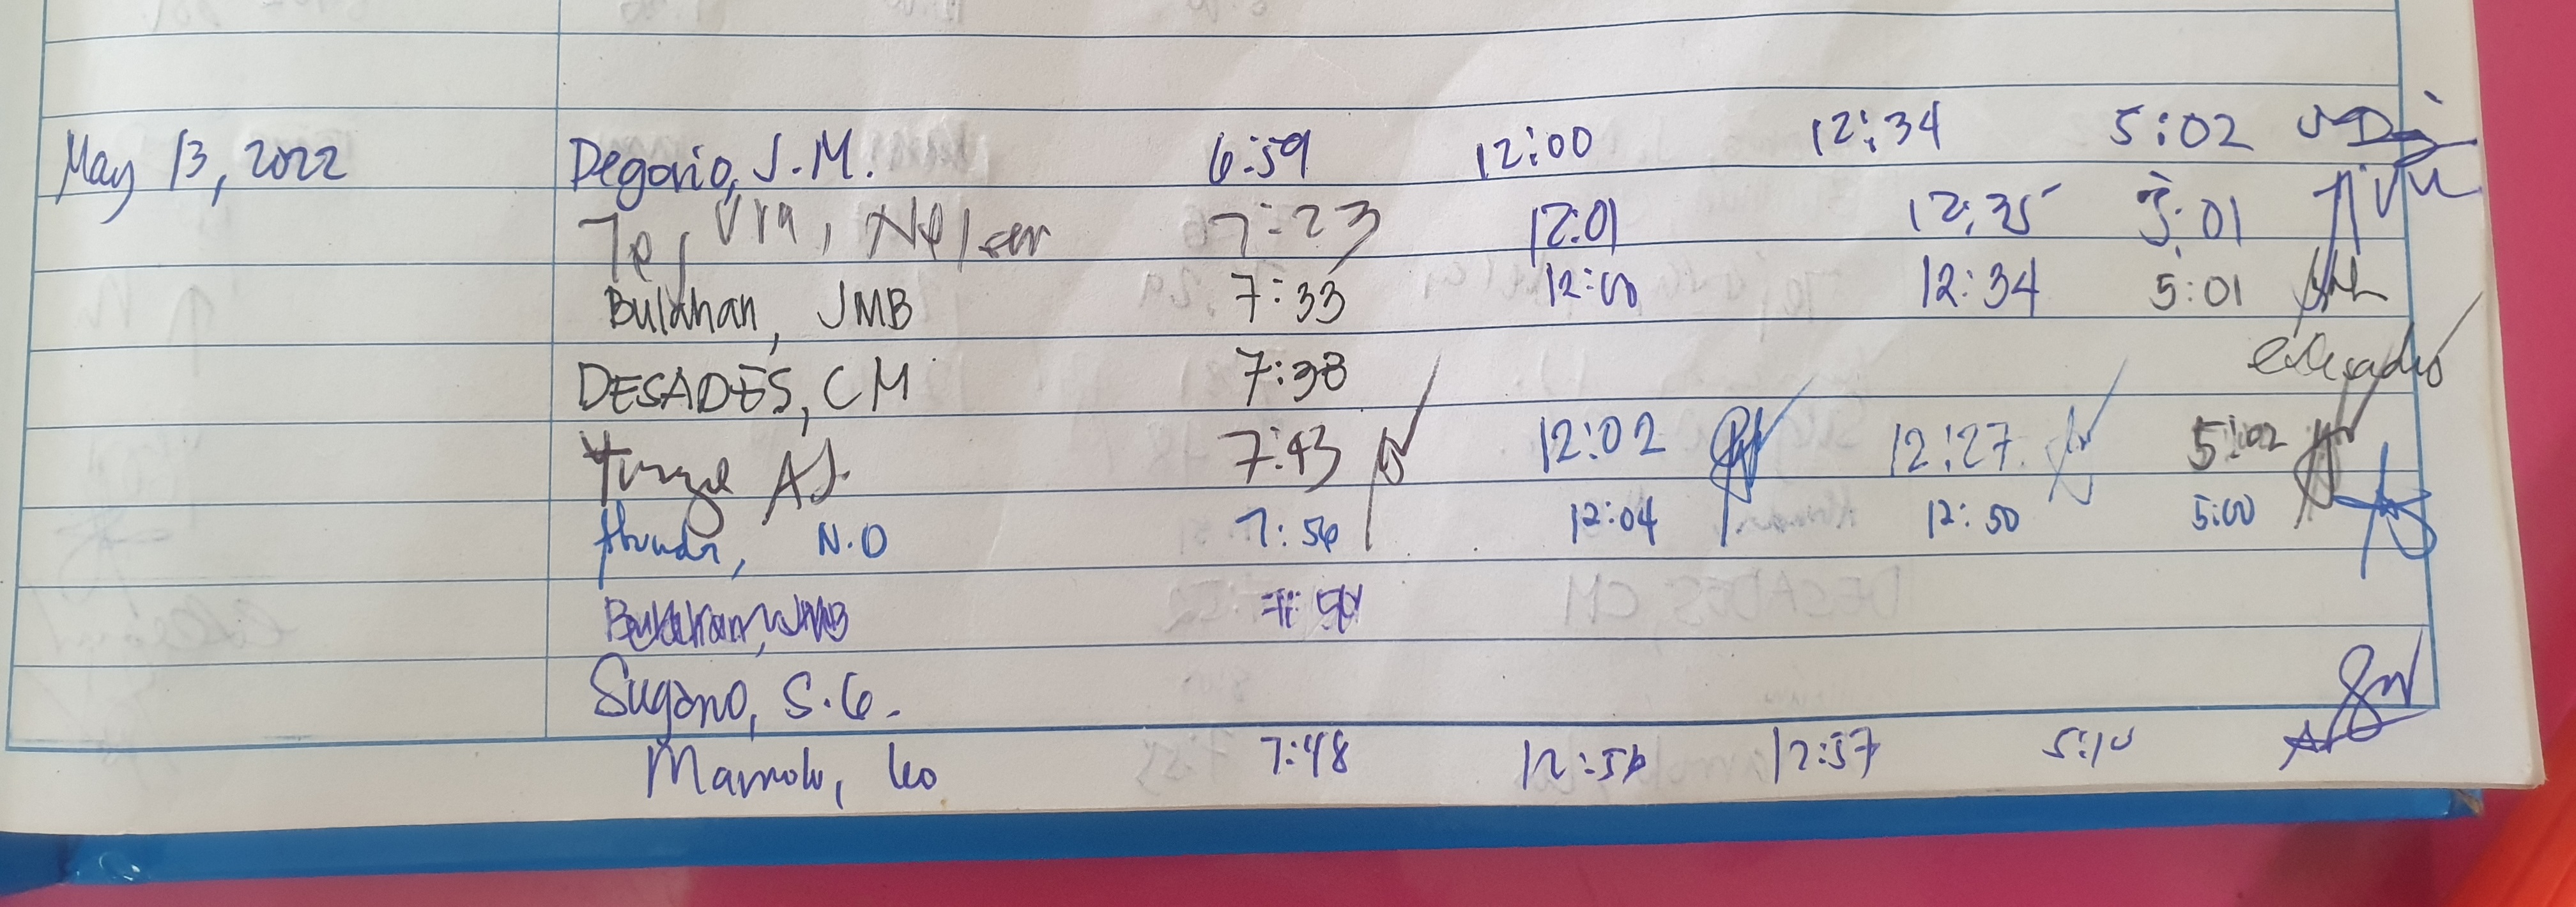 May 13, 2022 Degorio, J.M. 6:59 12:00 12:34 5:02
7:23 12:01 12:35 5:01
Bulahan, JMB 7:33 12:00 12:34 5:01
DESADES, CM 7:38
A.J. 7:43 12:02 12:27 5:02
N.D 7:56 12:04 12:50 5:00
Bulahan, JMB
Sugano, S.G.
Leo 7:48 12:56 12:57 5:10